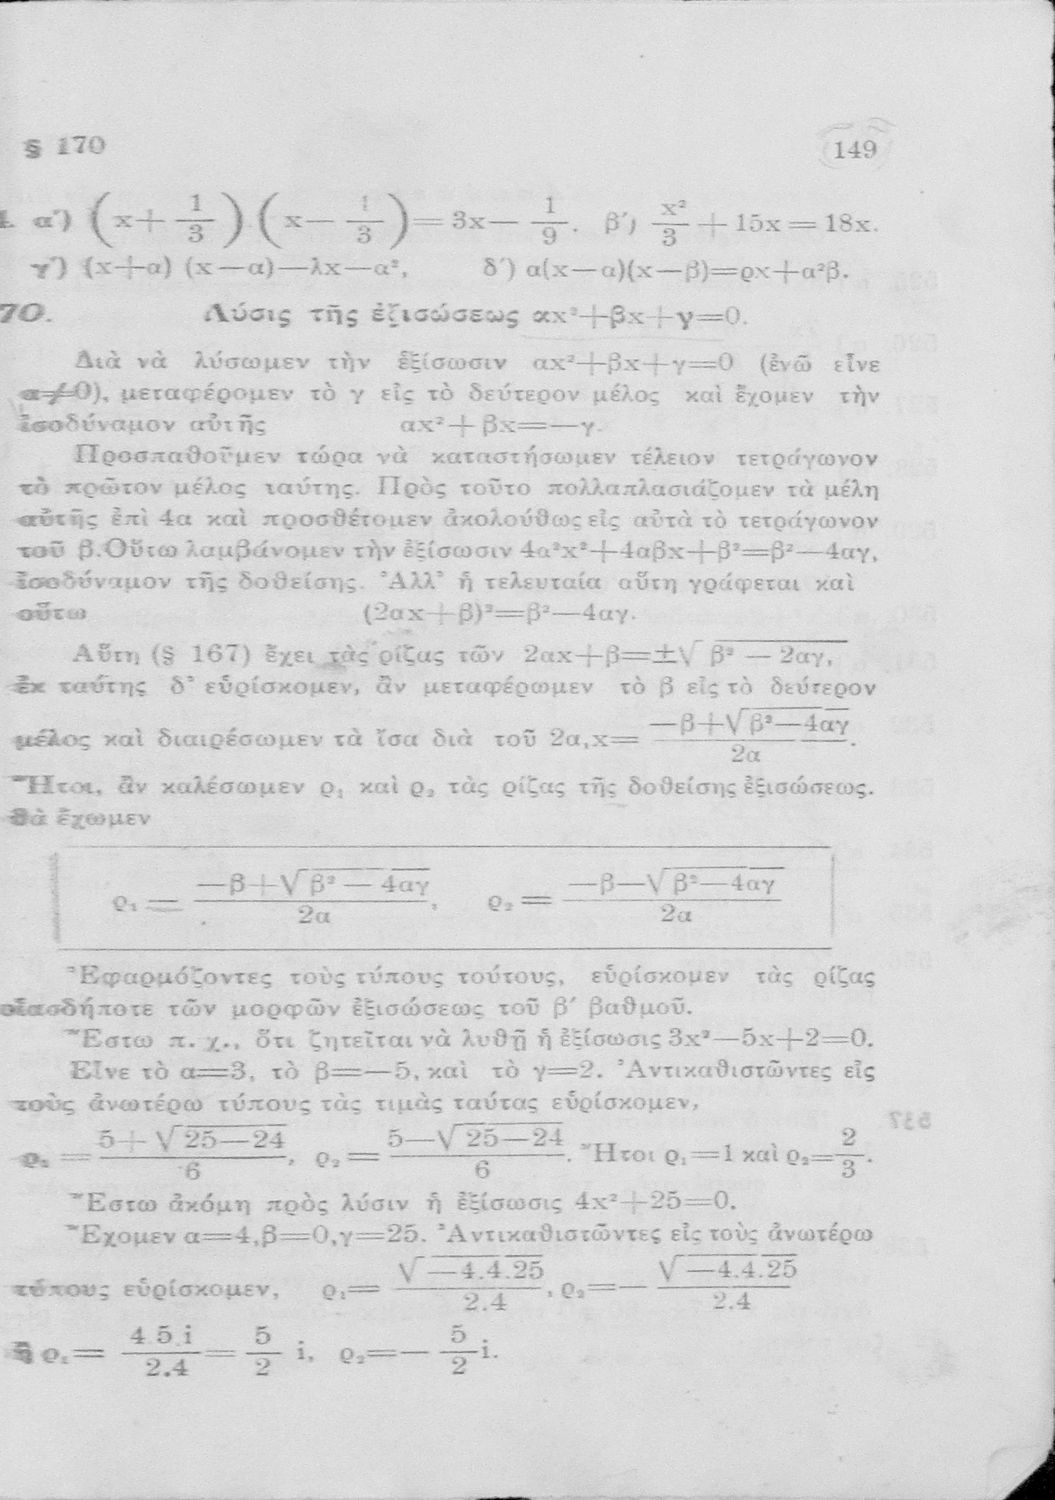 § 170 149
α΄) (x + 1/3) . (x — 1/3) = 3x — 1/9. β΄) x²/3 + 15x = 18x.
γ΄) (x+α) (x—α)—λx—α², δ΄) α(x—α)(x—β)=ρx+α²β.
70. Λύσις τῆς ἐξισώσεως αx²+βx+γ=0.
Διὰ νὰ λύσωμεν τὴν ἐξίσωσιν αx²+βx+γ=0 (ἐνῶ εἶνε
α≠0), μεταφέρομεν τὸ γ εἰς τὸ δεύτερον μέλος καὶ ἔχομεν τὴν
ἰσοδύναμον αὐτῆς αx²+βx=—γ.
Προσπαθοῦμεν τώρα νὰ καταστήσωμεν τέλειον τετράγωνον
τὸ πρῶτον μέλος ταύτης. Πρὸς τοῦτο πολλαπλασιάζομεν τὰ μέλη
αὐτῆς ἐπὶ 4α καὶ προσθέτομεν ἀκολούθως εἰς αὐτὰ τὸ τετράγωνον
τοῦ β. Οὕτω λαμβάνομεν τὴν ἐξίσωσιν 4α²x²+4αβx+β²=β²—4αγ,
ἰσοδύναμον τῆς δοθείσης. Ἀλλ' ἡ τελευταία αὕτη γράφεται καὶ
οὕτω (2αx+β)²=β²—4αγ.
Αὕτη (§ 167) ἔχει τὰς ρίζας τῶν 2αx+β=±√(β² — 2αγ),
ἐκ ταύτης δ' εὑρίσκομεν, ἂν μεταφέρωμεν τὸ β εἰς τὸ δεύτερον
μέλος καὶ διαιρέσωμεν τὰ ἴσα διὰ τοῦ 2α, x= (—β+√(β²—4αγ))/2α.
Ἤτοι, ἂν καλέσωμεν ρ₁ καὶ ρ₂ τὰς ρίζας τῆς δοθείσης ἐξισώσεως.
θὰ ἔχωμεν
ρ₁ = (—β+√(β² — 4αγ))/2α, ρ₂ = (—β—√(β²—4αγ))/2α
Ἐφαρμόζοντες τοὺς τύπους τούτους, εὑρίσκομεν τὰς ρίζας
οἱασδήποτε τῶν μορφῶν ἐξισώσεως τοῦ β΄ βαθμοῦ.
Ἔστω π. χ., ὅτι ζητεῖται νὰ λυθῇ ἡ ἐξίσωσις 3x²—5x+2=0.
Εἶνε τὸ α=3, τὸ β=—5, καὶ τὸ γ=2. Ἀντικαθιστῶντες εἰς
τοὺς ἀνωτέρω τύπους τὰς τιμὰς ταύτας εὑρίσκομεν,
ρ₁ = (5+√(25—24))/6, ρ₂ = (5—√(25—24))/6. Ἤτοι ρ₁=1 καὶ ρ₂=2/3.
Ἔστω ἀκόμη πρὸς λύσιν ἡ ἐξίσωσις 4x²+25=0.
Ἔχομεν α=4,β=0,γ=25. Ἀντικαθιστῶντες εἰς τοὺς ἀνωτέρω
τύπους εὑρίσκομεν, ρ₁= √(—4.4.25)/2.4, ρ₂=— √(—4.4.25)/2.4
ἢ ρ₁= 4.5.i/2.4 = 5/2 i, ρ₂=— 5/2 i.